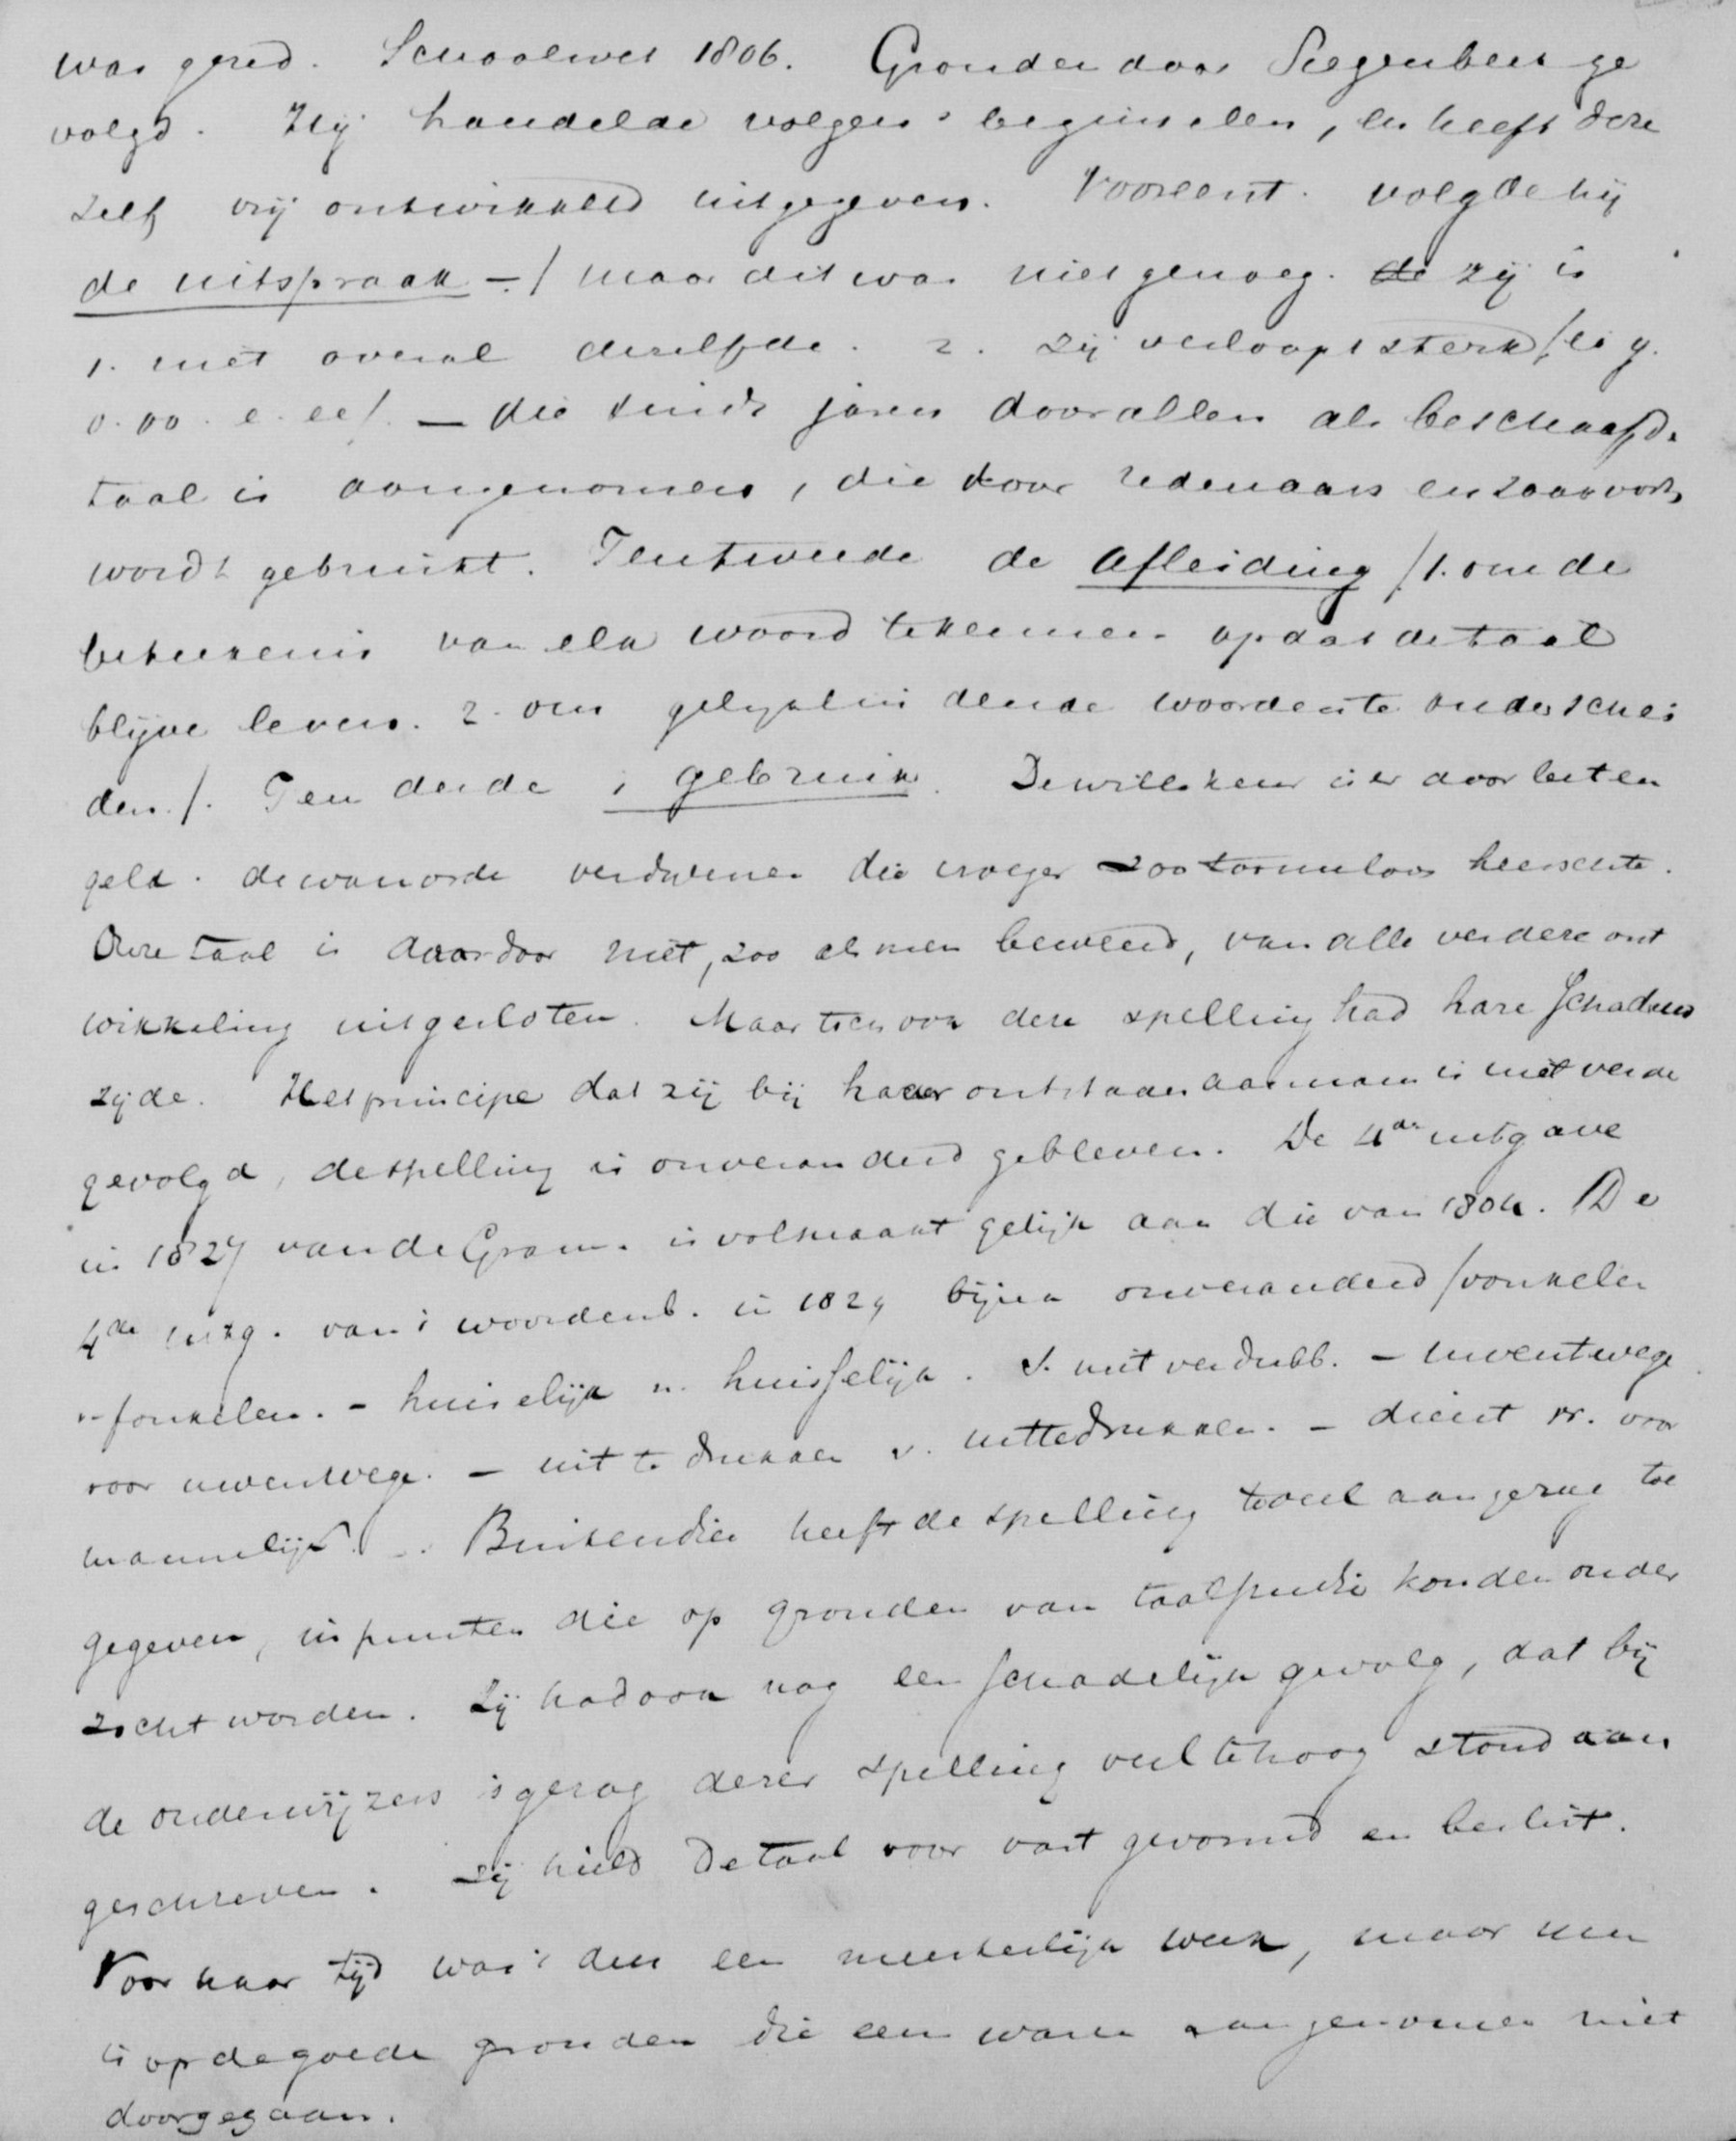 was gered. Schoolwet 1806. Gronden door Siegenbeek ge
volgd. Hij handelde volgens beginselen, en heeft deze
zelf vrij ontwikkeld uitgegeven. Vooreerst. volgde hij
de uitspraak – / maar dit was niet genoeg. de zij is
1. niet overal dezelfde. 2. zij verloopt sterk /ei y.
o. oo. e. ee/. – die sinds jaren door allen als beschaafde
taal is aangenomen, die door redenaars en
wordt gebruikt. Ten tweede de afleiding /1. om de
beteekenis van elk woord te kennen opdat de taal
blijve leven. 2. om gelijkluidende woorden te onderschei
den./. Ten derde 't gebruik. De willekeur is er door beteu
geld. de wanorde verdwenen die vroeger zoo toomeloos heerschte.
Onze taal is daardoor niet, zoo als men beweerd, van alle verdere ont
wikkeling uitgesloten. Maar toch ook deze spelling had hare schaduw
zijde. Het principe dat zij bij haar ontstaan aannam is niet verder
gevolgd, de spelling is onveranderd gebleven. De 4de uitgave
in 1827 van de Gram. is volmaakt gelijk aan die van 1804. De
4de uitg. van 't woordenb. in 1829 bijna onveranderd /vonkelen
v. fonkelen. – huiselijk v. huisselijk. S. niet verdubb. – uwentwege
voor uwenwege. – uit te drukken v. uittedrukken. – dienst vr. voor
mannelijk. /. Buitendien heeft de spelling te veel aan gezag toe
gegeven, in punten die op gronden van taalstudie konden onder
zocht worden. Zij had ook nog een schadelijk gevolg, dat bij
de onderwijzers 't gezag dezer spelling veel te hoog stond aan
geschreven. Zij hield de taal voor vast gevormd en beslist.
Voor haar tijd was 't dus een meesterlijk werk, maar men
is op de goede gronden die eens waren aangenomen niet
doorgegaan.